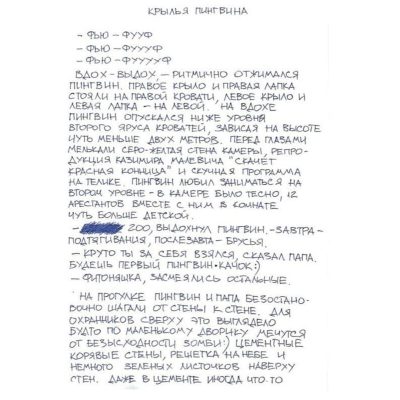 КРЫЛЬЯ ПИНГВИНА
- ФЬЮ - ФУУФ
- ФЬЮ - ФУУУФ
- ФЬЮ - ФУУУУФ
ВДОХ - ВЫДОХ, - РИТМИЧНО ОТЖИМАЛСЯ
ПИНГВИН. ПРАВОЕ КРЫЛО И ПРАВАЯ ЛАПКА
СТОЯЛИ НА ПРАВОЙ КРОВАТИ, ЛЕВОЕ КРЫЛО И
ЛЕВАЯ ЛАПКА - НА ЛЕВОЙ. НА ВДОХЕ
ПИНГВИН ОПУСКАЛСЯ НИЖЕ УРОВНЯ
ВТОРОГО ЯРУСА КРОВАТЕЙ, ЗАВИСАЯ НА ВЫСОТЕ
ЧУТЬ МЕНЬШЕ ДВУХ МЕТРОВ. ПЕРЕД ГЛАЗАМИ
МЕЛЬКАЛИ СЕРО-ЖЕЛТАЯ СТЕНА КАМЕРЫ, РЕПРО-
ДУКЦИЯ КАЗИМИРА МАЛЕВИЧА "СКАЧЕТ
КРАСНАЯ КОННИЦА" И СКУЧНАЯ ПРОГРАММА
НА ТЕЛИКЕ. ПИНГВИН ЛЮБИЛ ЗАНИМАТЬСЯ НА
ВТОРОМ УРОВНЕ - В КАМЕРЕ БЫЛО ТЕСНО, 12
АРЕСТАНТОВ ВМЕСТЕ С НИМ В КОМНАТЕ
ЧУТЬ БОЛЬШЕ ДЕТСКОЙ.
- 200, ВЫДОХНУЛ ПИНГВИН. - ЗАВТРА -
ПОДТЯГИВАНИЯ, ПОСЛЕЗАВТА - БРУСЬЯ.
- КРУТО ТЫ ЗА СЕБЯ ВЗЯЛСЯ, СКАЗАЛ ПАПА.
БУДЕШЬ ПЕРВЫЙ ПИНГВИН-КАЧОК:)
- ФИТОНЯШКА, ЗАСМЕЯЛИСЬ ОСТАЛЬНЫЕ.
НА ПРОГУЛКЕ ПИНГВИН И ПАПА БЕЗОСТАНО-
ВОЧНО ШАГАЛИ ОТ СТЕНЫ К СТЕНЕ. ДЛЯ
ОХРАННИКОВ СВЕРХУ ЭТО ВЫГЛЯДЕЛО
БУДТО ПО МАЛЕНЬКОМУ ДВОРИКУ МЕЧУТСЯ
ОТ БЕЗЫСХОДНОСТИ ЗОМБИ:) ЦЕМЕНТНЫЕ
КОРЯВЫЕ СТЕНЫ, РЕШЕТКА НА НЕБЕ И
НЕМНОГО ЗЕЛЕНЫХ ЛИСТОЧКОВ НАВЕРХУ
СТЕН. ДАЖЕ В ЦЕМЕНТЕ ИНОГДА ЧТО-ТО